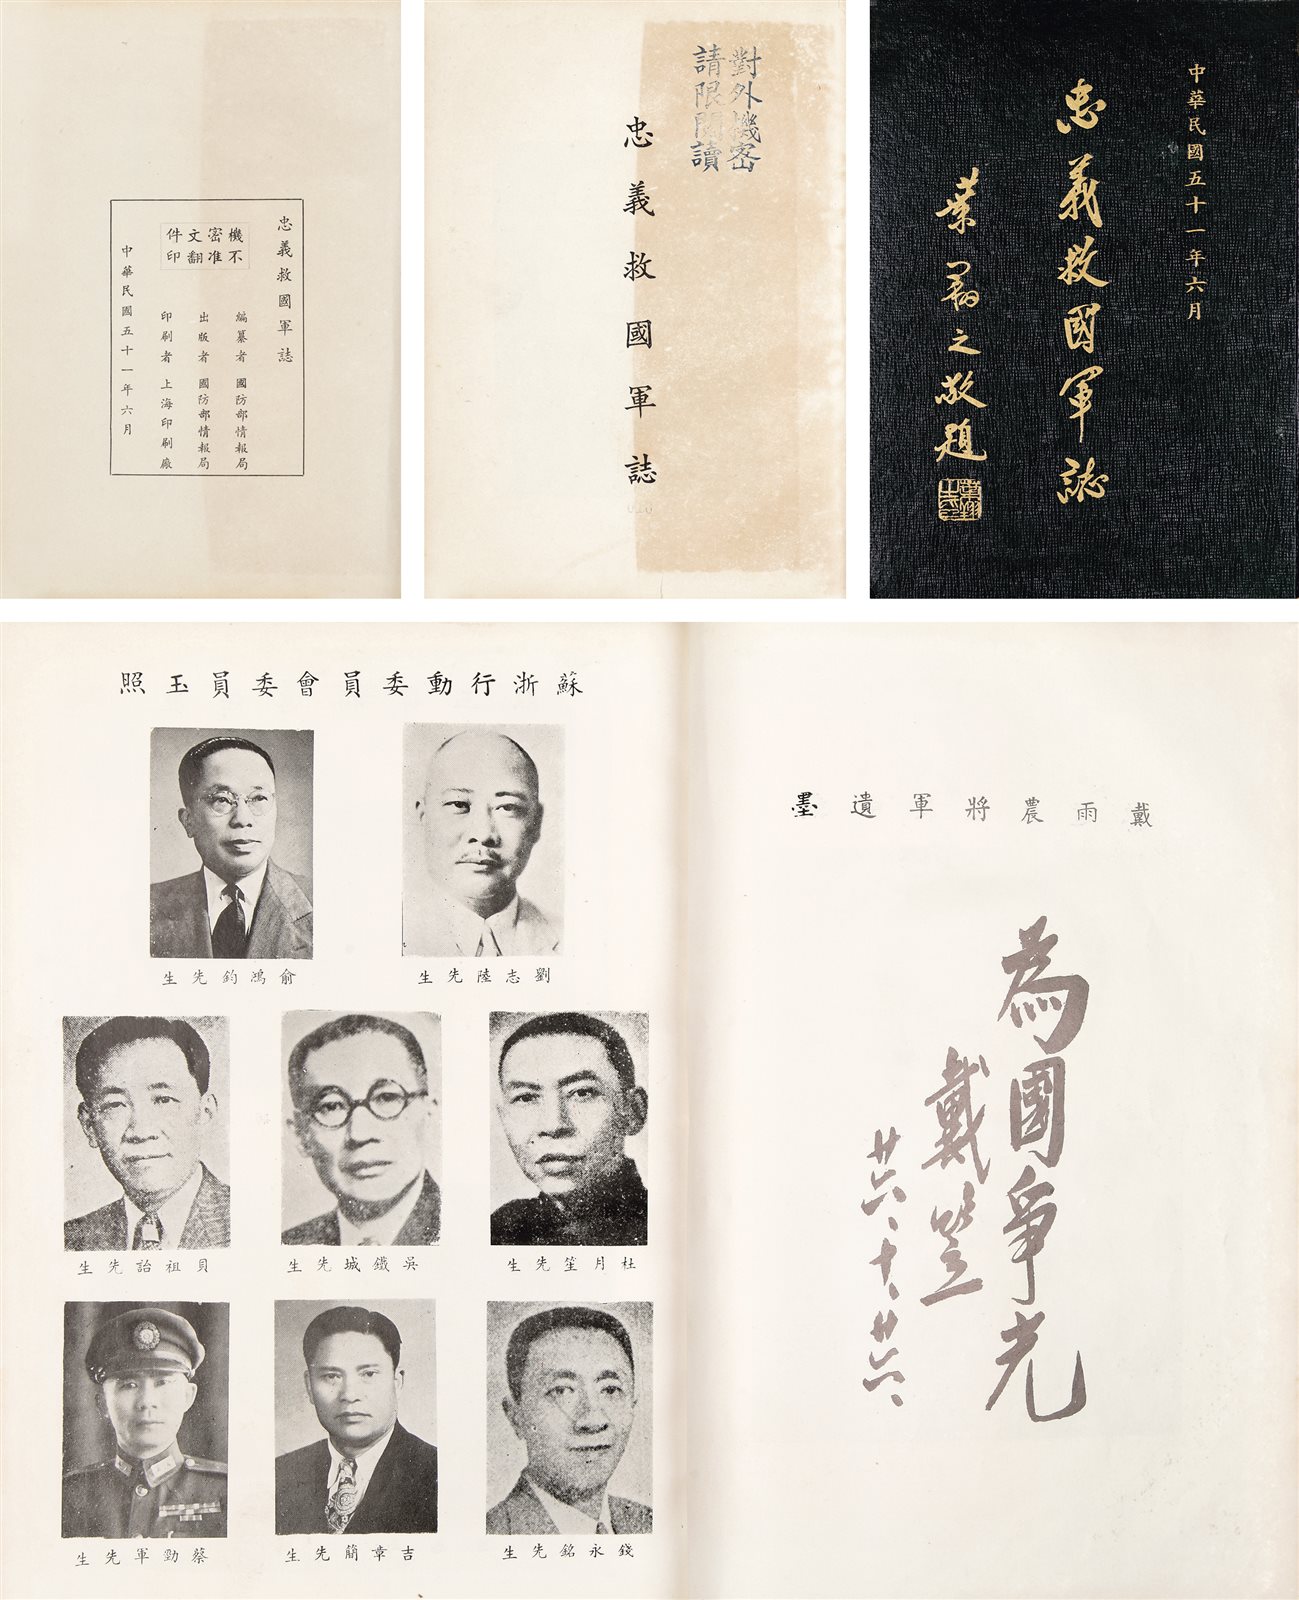 忠義救國軍誌
機密文件
不准翻印
編纂者 國防部情報局
出版者 國防部情報局
印刷者 上海印刷廠
中華民國五十一年六月
對外機密
請限閱讀
忠義救國軍誌
中華民國五十一年六月
忠義救國軍誌
葉翔之敬題
蘇浙行動委員會委員玉照
劉志陸先生
俞鴻鈞先生
杜月笙先生
吳鐵城先生
貝祖詒先生
錢永銘先生
吉章簡先生
蔡勁軍先生
戴雨農將軍遺墨
為國爭光
戴笠
廿六、十、廿六、